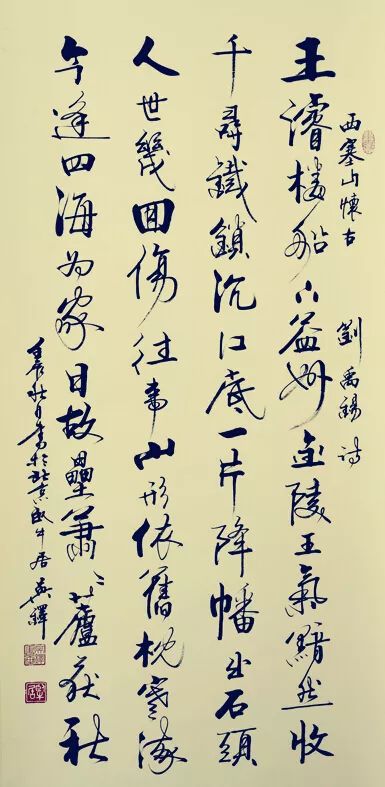 西塞山懷古 劉禹錫 詩
王濬楼船下益州金陵王氣黯然收
千尋鐵鎖沉江底一片降幡出石頭
人世幾回傷往事山形依舊枕寒流
今逢四海为家日故壘蕭〻蘆荻秋
壬辰秋月書於北京